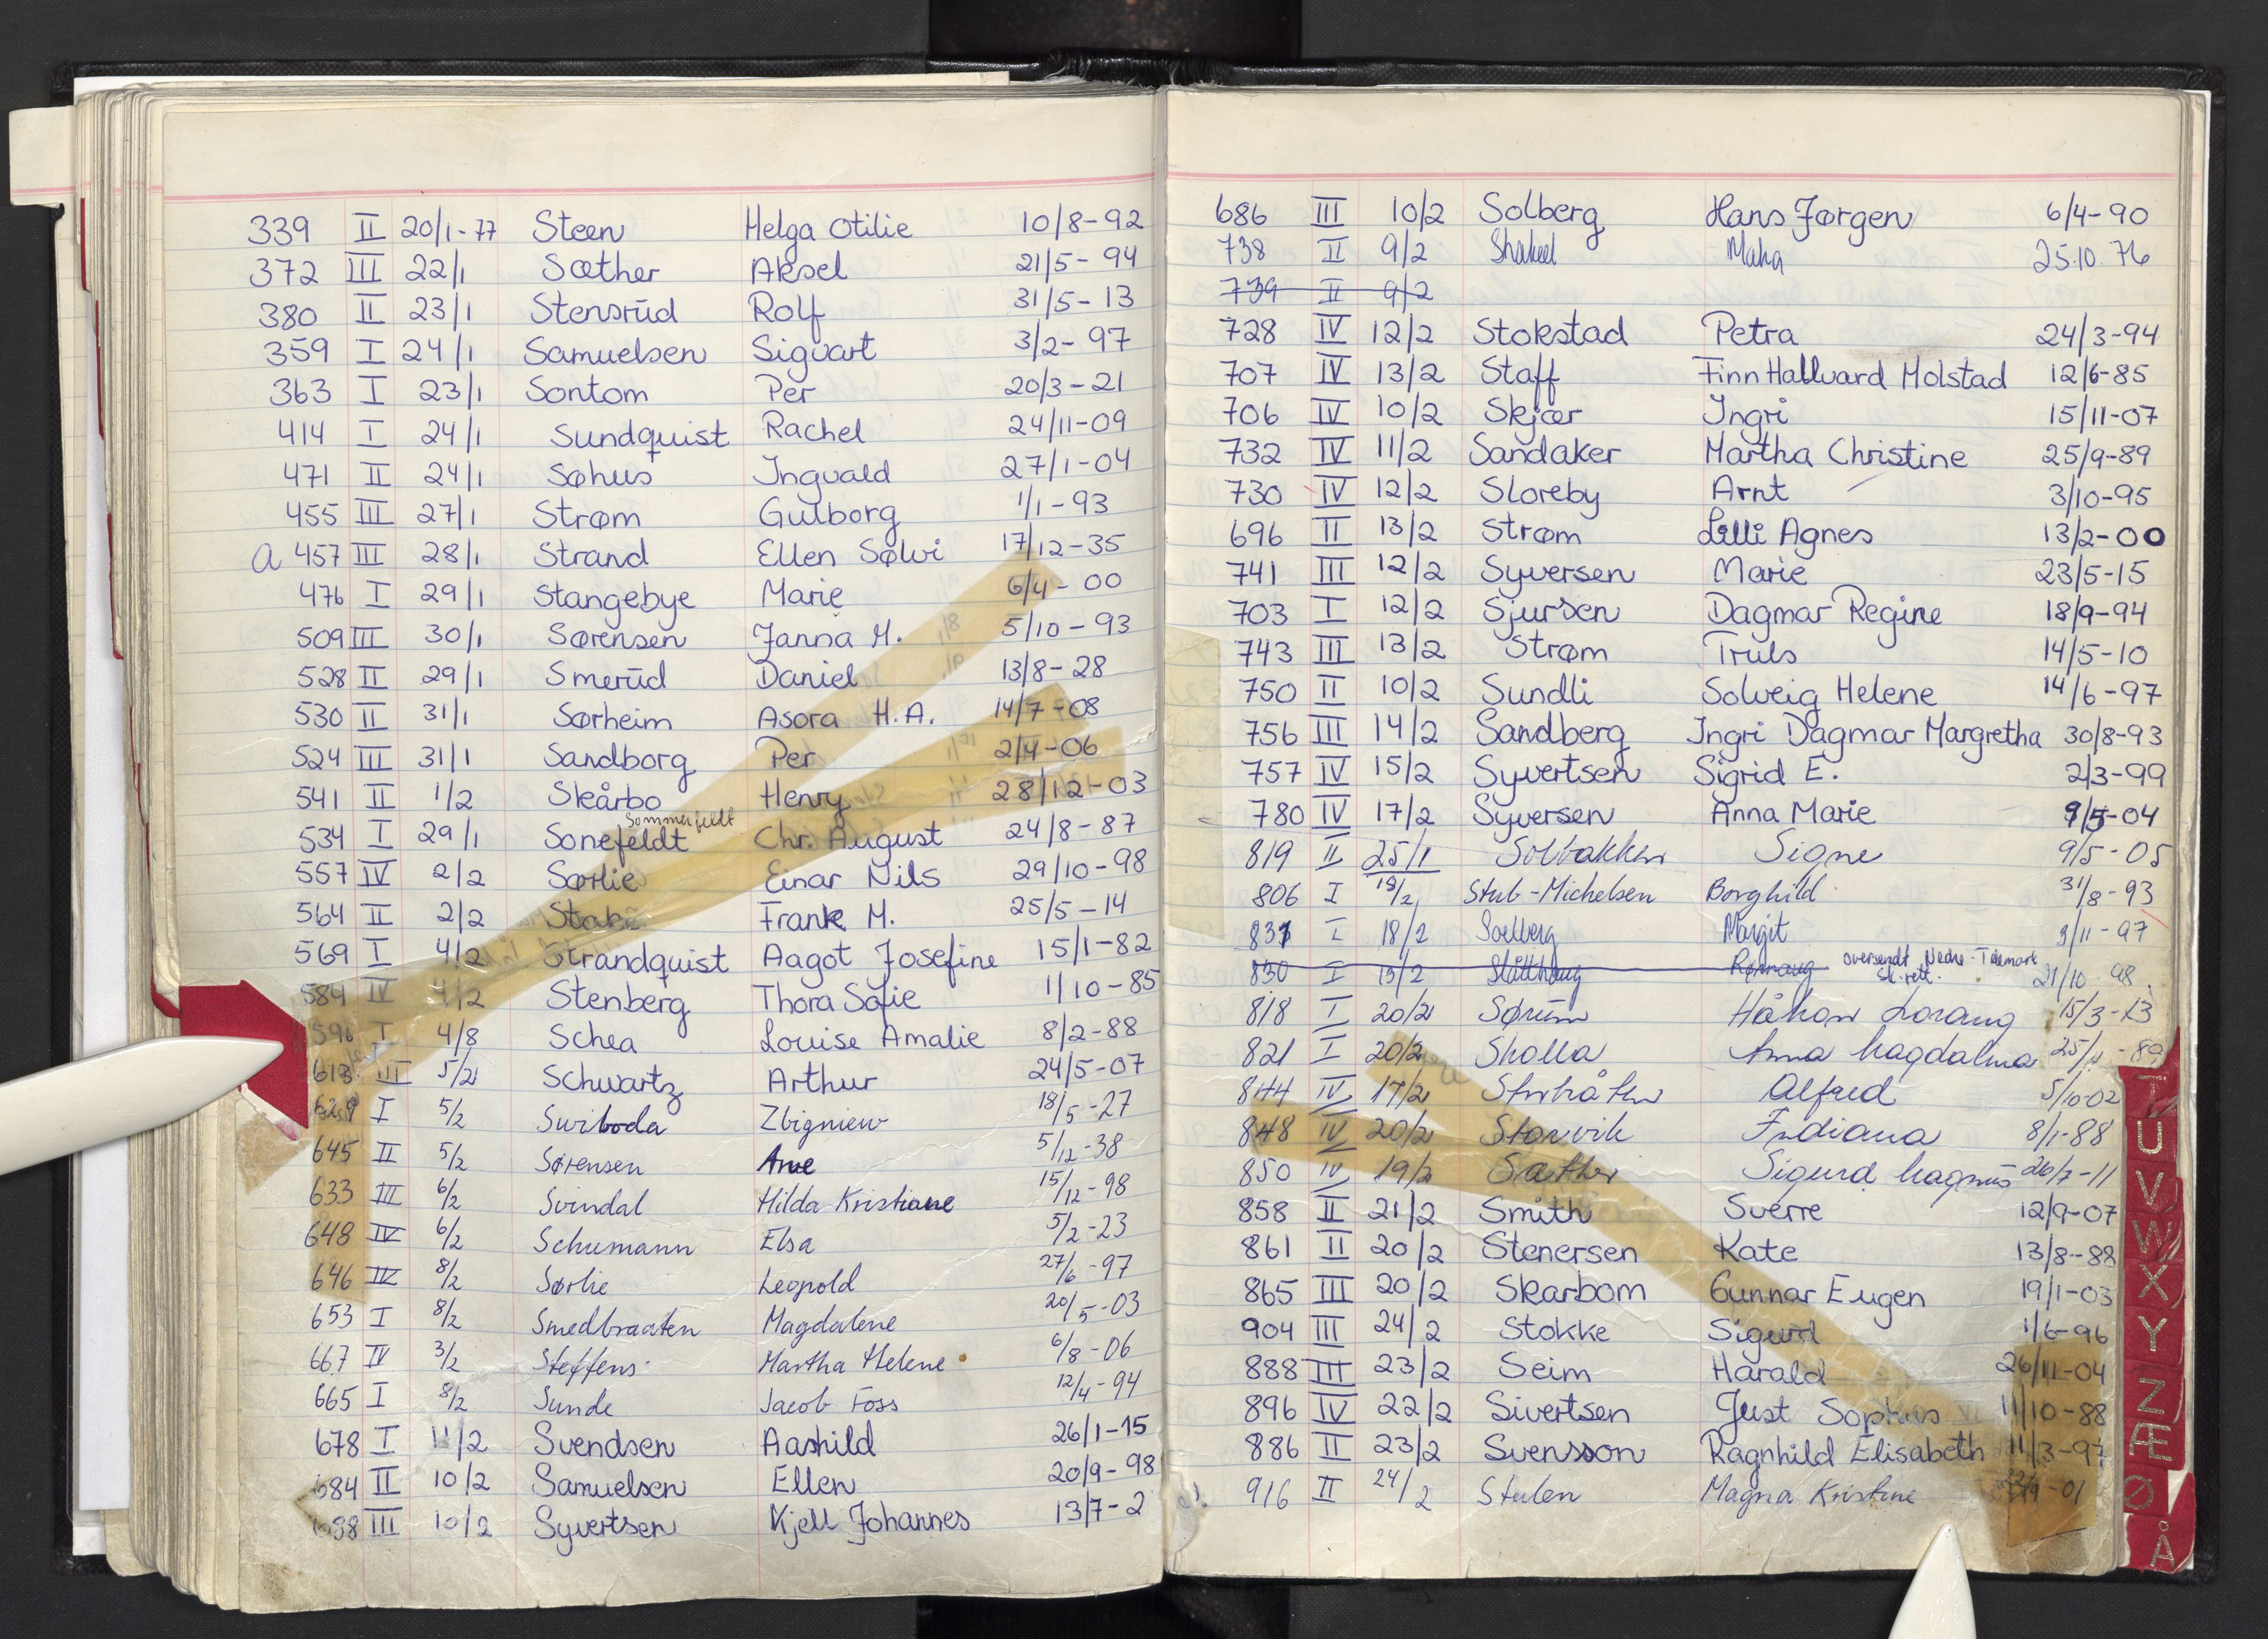 339 II 20/1-77 Steen Helga Otilie 10/8-92
372 III 22/1 Sæther Aksel 21/5-94
380 II 23/1 Stensrud Rolf 31/5-13
359 I 24/1 Samuelsen Sigvart 3/2-97
363 I 23/1 Sontom Per 20/3-21
414 I 24/1 Sundquist Rachel 24/11-09
471 II 24/1 Søhus Ingvald 27/1-04
455 III 27/1 Strøm Gulborg 1/1-93
a 457 III 28/1 Strand Ellen Sølvi 17/12-35
476 I 29/1 Stangebye Marie 6/4-00
509 III 30/1 Sørensen Janna M. 5/10-93
528 II 29/1 Smerud Daniel 13/8-28
530 II 31/1 Sørheim Asora H.A. 14/7-08
524 III 31/1 Sandborg Per 2/4-06
541 II 1/2 Skårbo Henry 28/12-03
Sommerfeldt
534 I 29/1 Sonefeldt Chr. August 24/8-87
557 IV 2/2 Sørlie Einar Nils 29/10-98
564 II 2/2 Frank M. 25/5-14
569 I 4/2 Strandquist Aagot Josefine 15/1-82
589 IV 4/2 Stenberg Thora Sofie 1/10-85
596 I 4/8 Schea Louise Amalie 8/2-88
613 III 5/2 Schwartz Arthur 24/5-07
I 5/2 Swiboda Zbigniew 18/5-27
645 II 5/2 Sørensen Arne 5/12-38
633 III 6/2 Svindal Hilda Kristiane 15/12-98
648 IV 6/2 Schumann Elsa 5/2-23
646 IV 8/2 Sørlie Leopold 27/6-97
653 I 8/2 Smedbraaten Magdalene 20/5-03
667 IV 3/2 Steffens Martha Helene 6/8-06
665 I 8/2 Sunde Jacob Foss 12/4-94
678 I 11/2 Svendsen Aashild 26/1-15
684 II 10/2 Samuelsen Ellen 20/9-98
688 III 10/2 Syvertsen Kjell Johannes 13/7-2
686 III 10/2 Solberg Hans Jørgen 6/4-90
738 II 9/2 Shakeel Maha 25.10.76
739 II 9/2
728 IV 12/2 Stokstad Petra 24/3-94
707 IV 13/2 Staff Finn Hallvard Molstad 12/6-85
706 IV 10/2 Skjær Ingri 15/11-07
732 IV 11/2 Sandaker Martha Christine 25/9-89
730 IV 12/2 Sloreby Arnt 3/10-95
696 II 13/2 Strøm Lilli Agnes 13/2-00
741 III 12/2 Syversen Marie 23/5-15
703 I 12/2 Sjursen Dagmar Regine 18/9-94
743 III 13/2 Strøm Truls 14/5-10
750 II 10/2 Sundli Solveig Helene 14/6-97
756 III 14/2 Sandberg Ingri Dagmar Margretha 30/8-93
757 IV 15/2 Syvertsen Sigrid E. 2/3-99
780 IV 17/2 Syversen Anna Marie 9/5-04
819 II 25/1 Solbakken Signe 9/5-05
806 I 18/2 Stub-Michelsen Borghild 31/8-93
831 I 18/2 Soelberg Margit 3/11-97
oversendt Nedre-Telemark
830 I 13/2 Slåtthaug Rønnaug sk.rett. 21/10-98
818 I 20/2 Sørum Håkon Lorang 15/3-13
821 I 20/2 Skolla Anna Magdalena 25/4-89
844 IV 17/2 Alfred 5/10-02
848 IV 20/2 Storvik Indiana 8/1-88
850 IV 19/2 Sæther Sigurd Magnus 26/7-11
858 II 21/2 Smith Sverre 12/9-07
861 II 20/2 Stenersen Kate 13/8-88
865 III 20/2 Skarbom Gunnar Eugen 19/1-03
904 III 24/2 Stokke Sigurd 1/6-96
888 III 23/2 Seim Harald 26/11-04
896 IV 22/2 Sivertsen Just Sophus 11/10-88
886 II 23/2 Svensson Ragnhild Elisabeth 11/3-97
916 II 24/2 Stulen Magna Kristine -01
T
U
V
W
X
Y
Z
Æ
Ø
Å